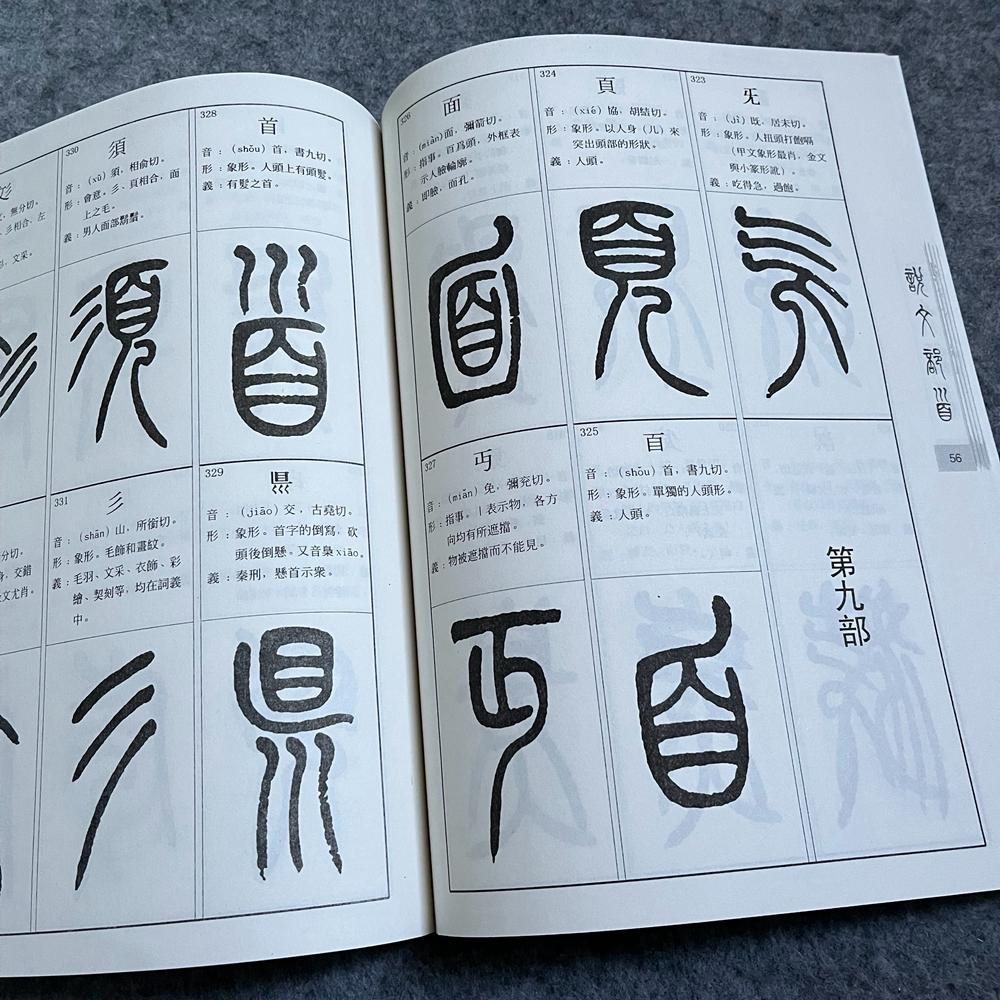 說文部首
56
323
旡
音：(jì) 既，居未切。
形：象形。人扭頭打飽嗝
（甲文象形最肖，金文
與小篆形訛）。
義：吃得急，過飽。
第九部
324
頁
音：(xié) 協，胡結切。
形：象形。以人身（儿）來
突出頭部的形狀。
義：人頭。
325
百
音：(shǒu) 首，書九切。
形：象形。單獨的人頭形。
義：人頭。
326
面
音：(miàn)面，彌箭切。
形：指事。百為頭，外框表
示人臉輪廓。
義：即臉，面孔。
327
丏
音：(miǎn) 免，彌兖切。
形：指事。丨表示物，各方
向均有所遮擋。
義：物被遮擋而不能見。
328
首
音：(shǒu) 首，書九切。
形：象形。人頭上有頭髮。
義：有髮之首。
329
音：(jiāo) 交，古堯切。
形：象形。首字的倒寫，砍
頭後倒懸。又音梟 xiāo。
義：秦刑，懸首示衆。
330
須
音：(xū) 須，相俞切。
形：會意。彡、頁相合，面
上之毛。
義：男人面部鬍鬚。
331
彡
音：(shān) 山，所銜切。
形：象形。毛飾和畫紋。
義：毛羽、文采、衣飾、彩
繪、契刻等，均在詞義
中。
，無分切。
彡相合，左
，文采。
分切。
，交錯
金文尤肖。